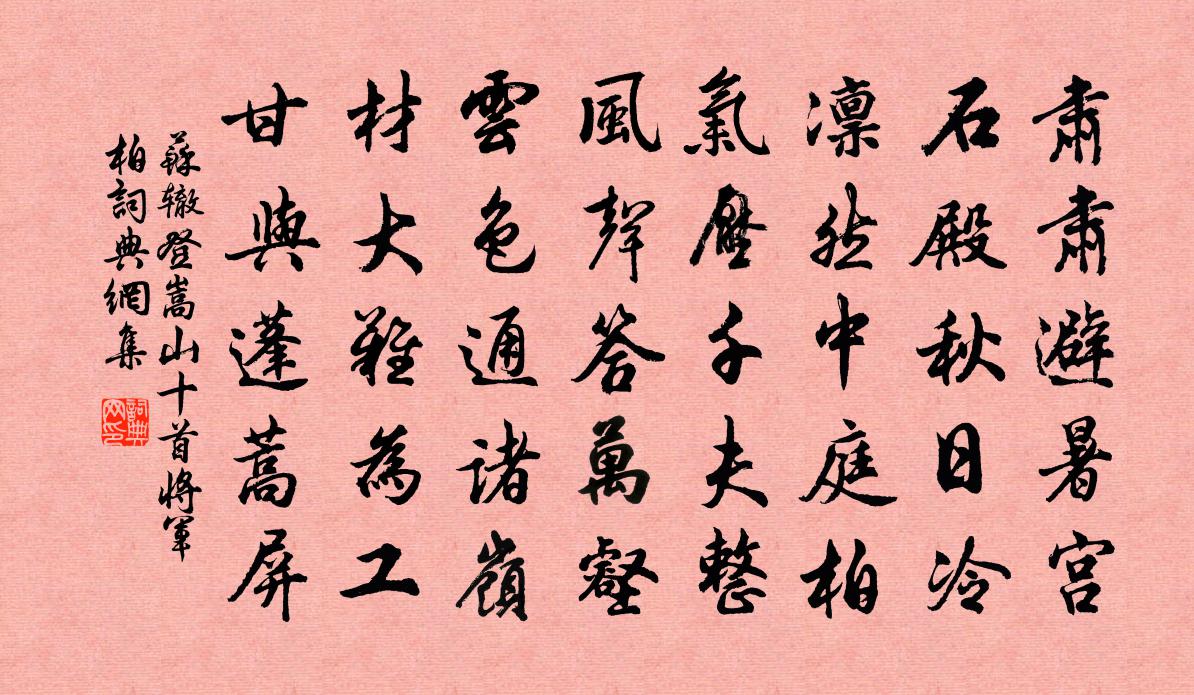 肅肅避暑宮
石殿秋日冷
凛然中庭柏
氣壓千夫整
風聲答萬壑
雲色通諸嶺
材大難為工
甘與蓬蒿屏
蘇辙登嵩山十首將軍
柏詞典網集
詞典网印